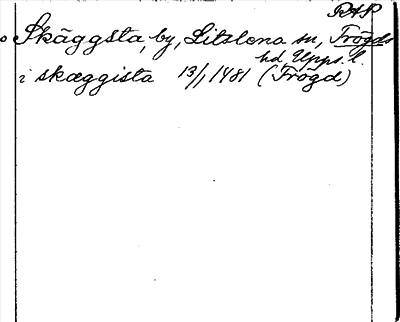 RAP
Skäggsta, by, Litslena sn, Trögds
hd, Upps. l.
i skæggista 13/1 1481 (Trögd)